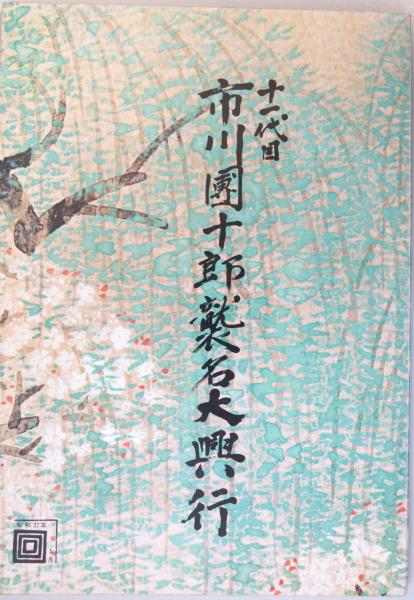 十一代目
市川團十郎襲名大興行
昭和37年